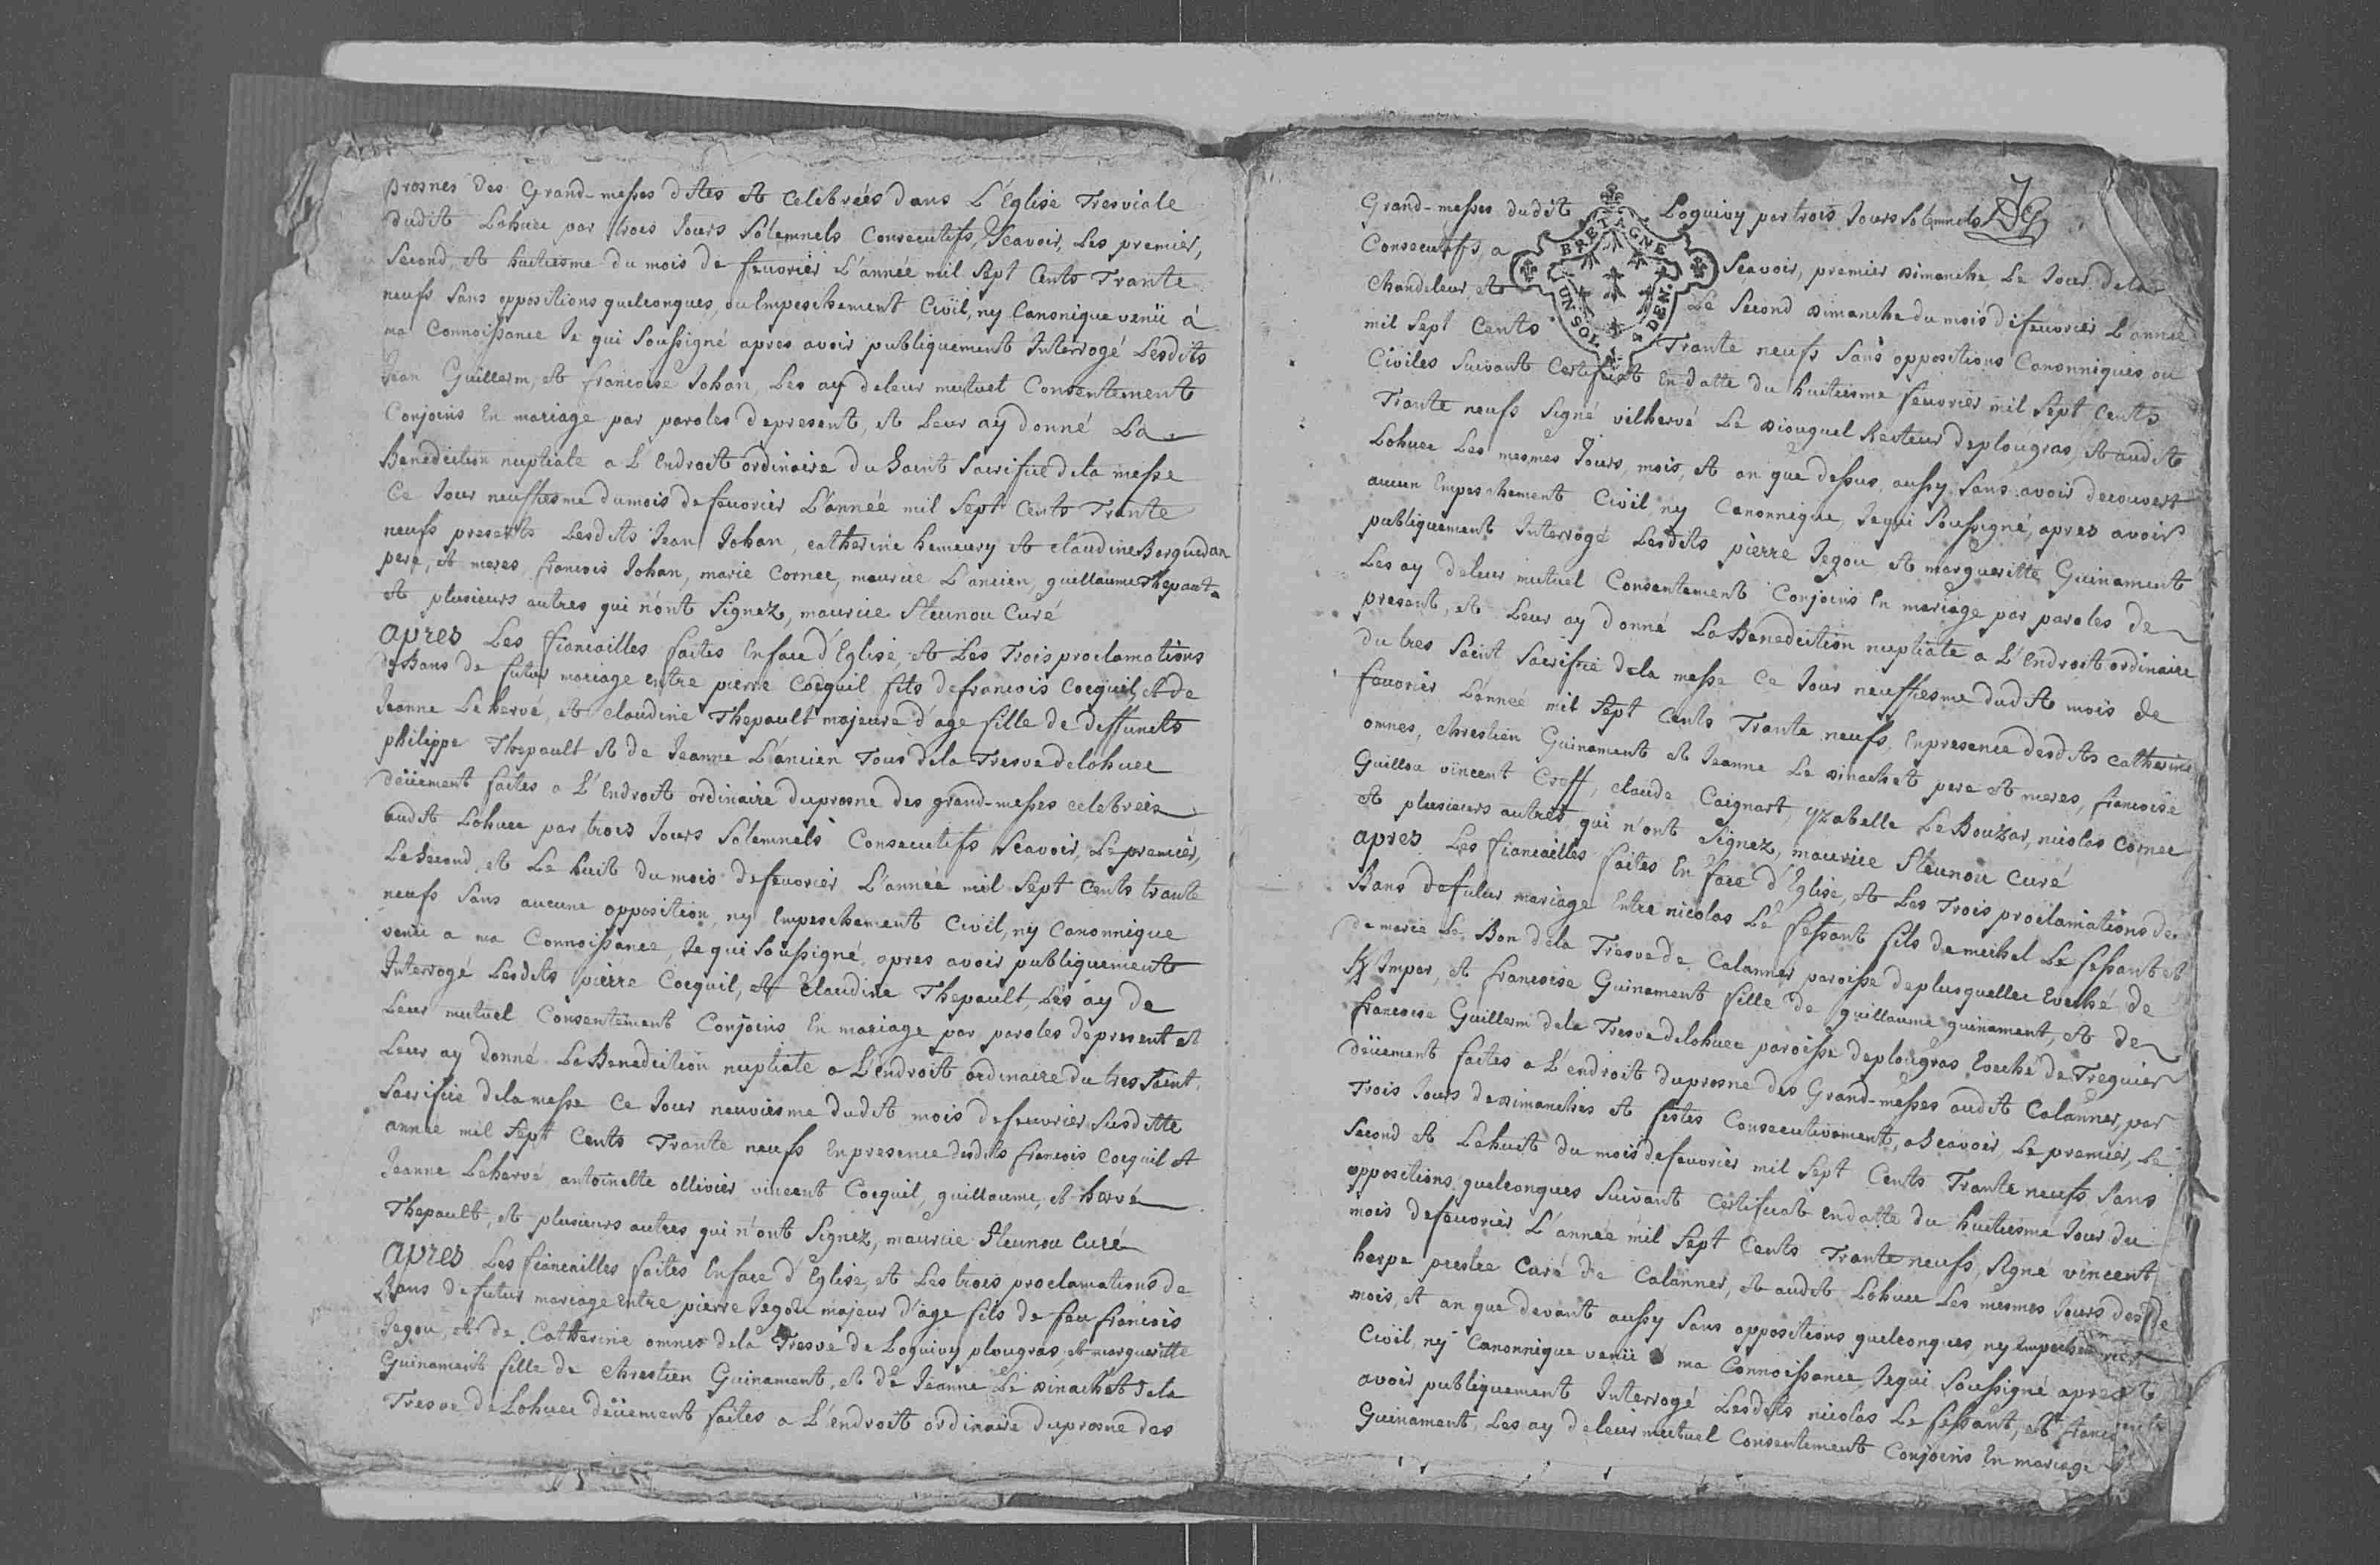 prosnes des Grand-messes dites et celebreés dans L'Eglise Tresviale
dudit Lohuec par trois Jours Solemnels Consecutifs, Scavoir, Les premier,
Second, et huitiesme du mois de feuvrier L'année mil Sept Cents Trante
neufs Sans oppositions quelconques, ou Empeschement Civil, ny Canonique venü à
ma Connoissance Je qui Soussigné apres avoir publiquement Interrogé Lesdits
Jean Guillerm, et francoise Johan, Les ay deleur mutuel Consentement
Conjoins En mariage par paroles depresent, et Leur ay donné La
Benediction nuptiale a L'Endroit ordinaire du Saint Sacrifice dela messe
Ce Jour neuffiesme dumois defeuvrier L'année mil Sept Cents Trante
neufs presents Lesdits Jean Johan, catherine hemeury et claudine Borguedan
pere, et meres, francois Johan, marie Cornec, maurice L'ancien, guillaume Thepaut
et plusieurs autres qui n'ont Signez, maurice Steunou Curé
apres Les fiancailles faites Enface d'Eglise, et Les Trois proclamations
deBans de futur mariage entre pierre Cocquil fils defrancois Cocquil et de
Jeanne Lehervé, et claudine Thepault majeure d'age fille de deffuncts
philippe Thepault et de Jeanne L'ancien Tous dela Tresve delohuec
deüement faites a L'Endroit ordinaire duprosne des grand-messes celebreés
audit Lohuec par trois Jours Solemnels Consecutifs Scavoir, Le premier,
Le Second, et Le huit du mois defeuvrier L'année mil Sept Cents trante
neufs Sans aucune opposition, ny Empeschement Civil, ny Canonnique
venü a ma Connoissance, Je qui Soussigné, apres avoir publiquement
Interrogé Lesdits pierre Cocquil, et Claudine Thepault, Les ay de
Leur mutuel Consentement Conjoins En mariage par paroles depresent et
Leur ay donné LaBenediction nuptiale a L'endroit ordinaire du tres Saint
Sacrifice delamesse Ce Jour neuviesme dudit mois defeuvrier Susditte
année mil Sept Cents Trante neufs Enpresence desdits francois Cocquil et
Jeanne Lehervé, antoinette ollivier vincent Cocquil, guillaume, et hervé
Thepault, et plusieurs autres qui n'ont Signez, maurice Steunou Curé
apres Les fiancailles faites Enface d'Eglise, et Les trois proclamations de
Bans defutur mariage Entre pierre Jegou majeur d'age fils de feu francois
Jegou, et de Catherine omnes dela Tresve de Loguivy plougras, et margueritte
Guinament fille de chrestien Guinament, et de Jeanne Le Dinachet dela
Tresve de Lohuec deüement faites a L'endroit ordinaire duprosne des
Grand-messes dudit Loguivy par trois Jours Solemnels
Consecutifs a Scavoir, premier Dimanche Le Jour dela
BRETAGNE
UN SOL 4 DEN.
Chandeleur, et Le Second Dimanche du mois defeuvrier L'année
mil Sept Cents Trante neufs Sans oppositions Canonniques, ou
Civiles Suivant Certificat En datte du huitiesme feuvrier mil Sept Cents
Trante neufs Signé vilhervé Le Diouguel Recteur deplougras, et audit
Lohuec Les mesmes Jours, mois, et an que dessus, aussy Sans avoir decouvert
aucun Empeschement Civil, ny Canonnique, Je qui Soussigné, apres avoir
publiquement Interrogé Lesdits pierre Jegou et margueritte Guinament
Les ay deleur mutuel Consentement Conjoins En mariage par paroles de
present, et Leur ay donné LaBenediction nuptiale a L'Endroit ordinaire
du tres Saint Sacrifice dela messe Ce Jour neuffiesme dudit mois de
feuvrier L'anneé mil Sept Cents Trante neufs, Enpresence desdits catherine
omnes, chrestien Guinament et Jeanne Le Dinachet pere et meres, francoise
Guillou vincent Croff, claude Caignart, yzabelle LeBouzar, nicolas Cornec
et plusieurs autres qui n'ont Signez, maurice Steunou Curé
apres Les fiancailles faites En face d'Eglise, et Les Trois proclamations de
Bans defutur mariage Entre nicolas Le fessant fils de michel Le fessant et
de marie Le Bon dela Tresve de Calanner paroisse deplusquellec Eveché de
Kimper, et francoise Guinament fille de guillaume guinament, et de
francoise Guillerm dela Tresve delohuec paroisse deplougras Eveché de Treguier
deüement faites a L'endroit duprosne des Grand-messes audit Calanner, par
Trois Jours deDimanches et festes Consecutivement, a Scavoir, Le premier, Le
Second et Lehuit du mois defeuvrier mil Sept Cents Trante neufs Sans
oppositions quelconques Suivant Certificat endatte du huitiesme Jour du
mois defeuvrier L'année mil Sept Cents Trante neufs, Signé vincent
herpe prestre Curé de Calanner, et audit Lohuec Les mesmes Jours des
mois, et an que devant aussy Sans oppositions quelconques, ny Empechement
Civil, ny Canonnique venü a ma Connoissance Je qui Soussigné apres
avoir publiquement Interrogé Lesdits nicolas Le fessant, et
Guinament, Les ay deleur mutuel Consentement Conjoins En mariage